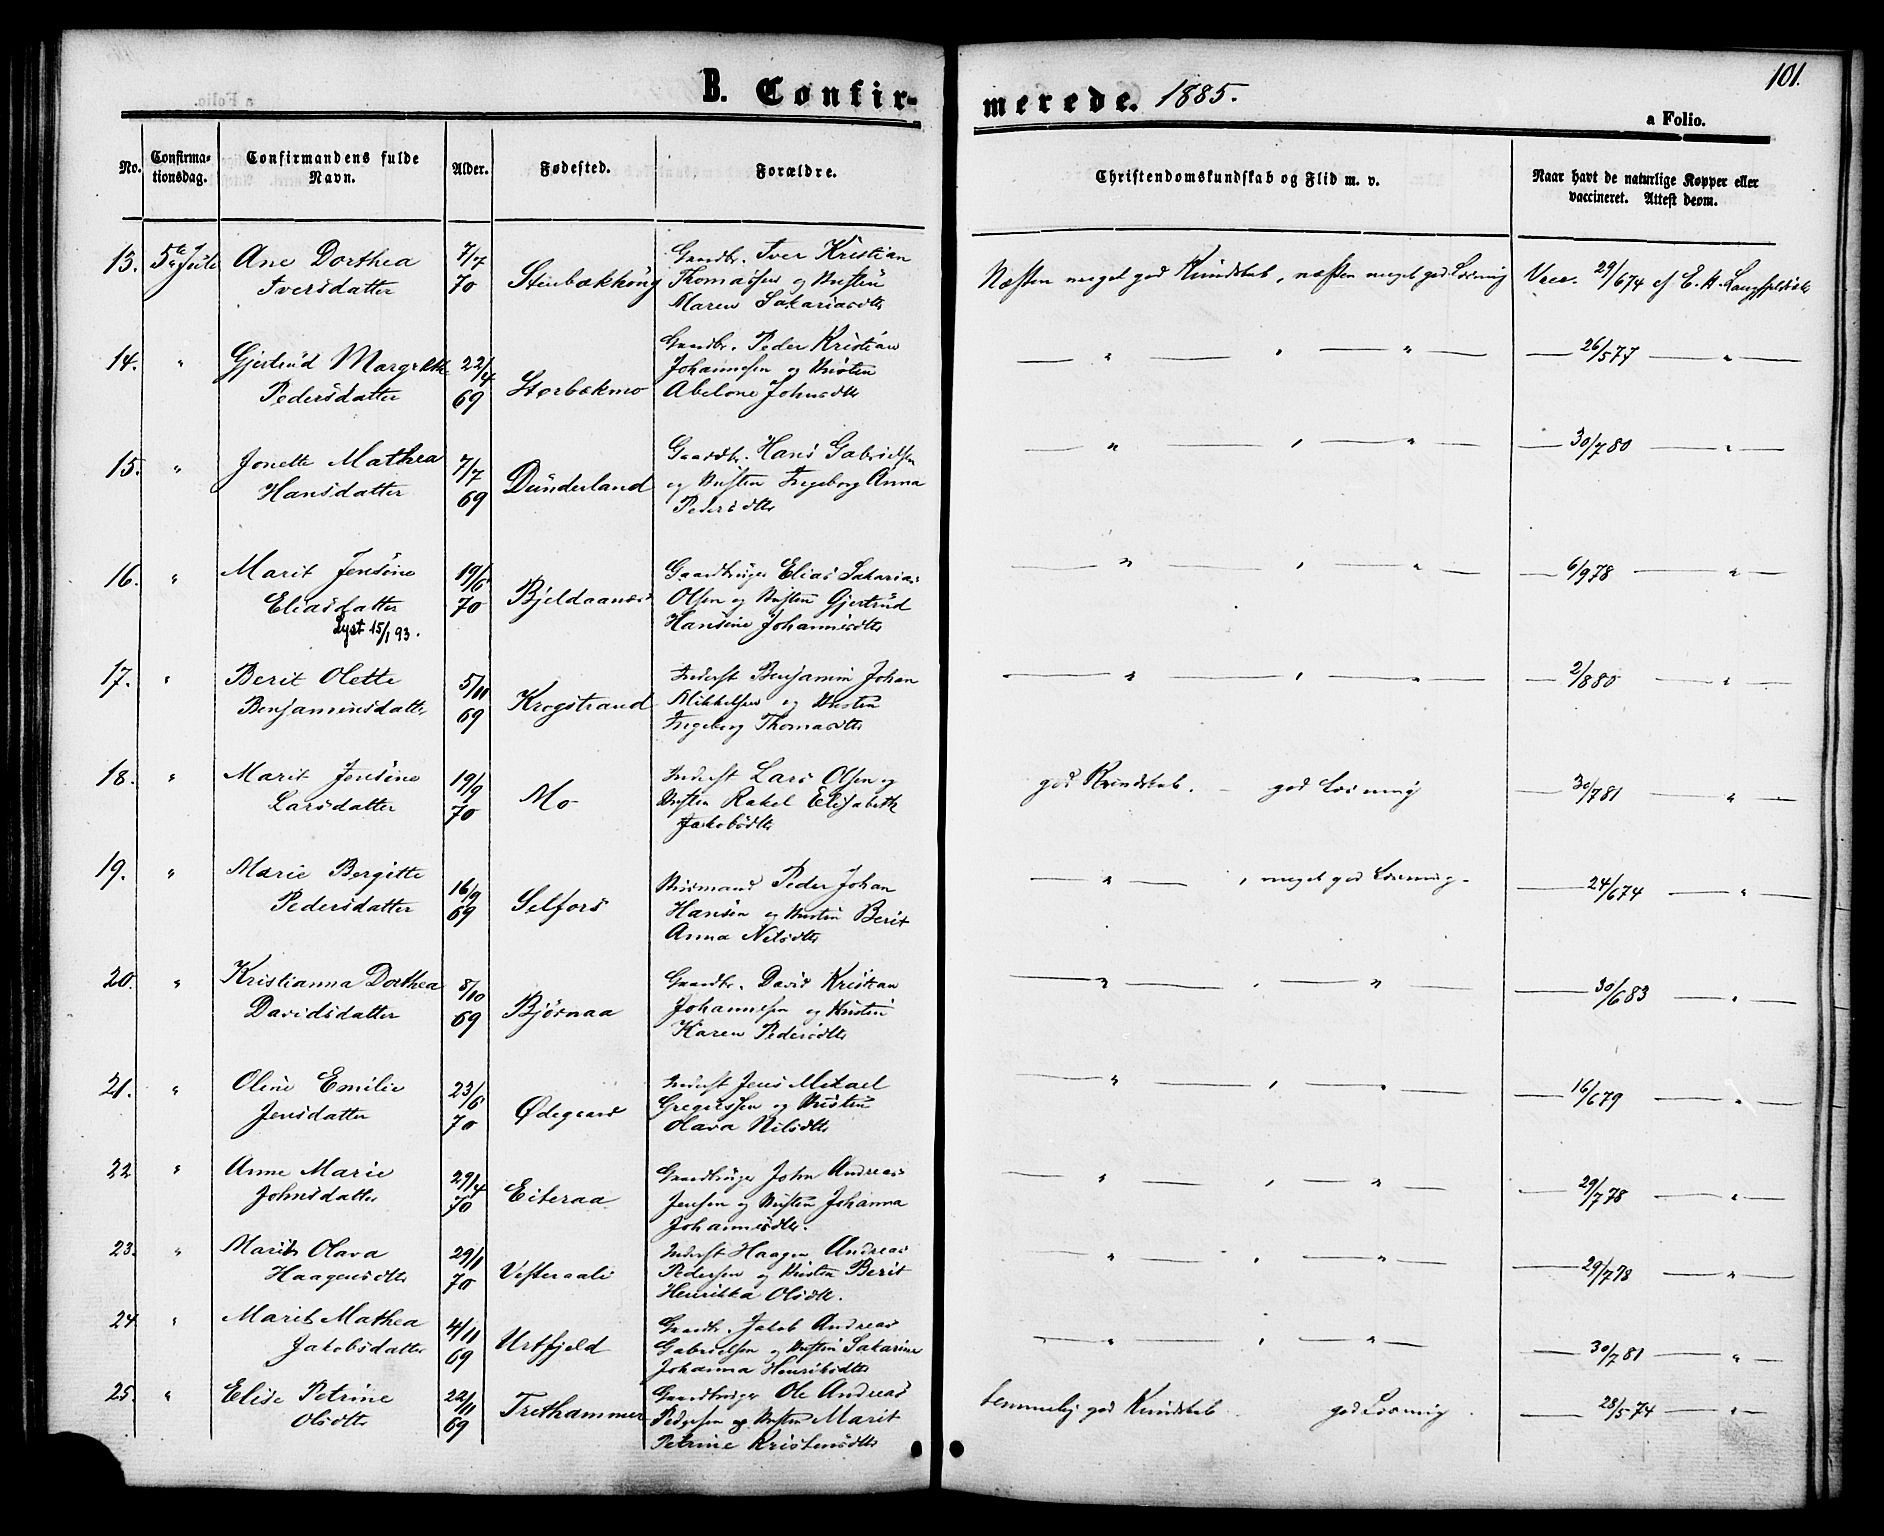 101.
B. Confir-
merede. 1885.
a Folio.
No.
Confirma-
tionsdag.
Confirmandens fulde
Navn.
Alder.
Fødested.
Forældre.
Christendomskundskab og Flid m. v.
Naar havt de naturlige Kopper eller
vaccineret. Attest deom.
13. 5te Juli Ane Dorthea 7/7 Gaardbr. Iver Kristian
Iversdatter 70 Stenbækhøug Thomassen og Hustru
Maren Sakariasdtr
Næsten meget god Kundskab, næsten meget god Læsning Vacc. 29/6 74 af E. A. Langfjeldvik
14. " Gjertrud Margrethe 22/4 Gaardbr. Peder Kristian
Pedersdatter 69 Storbækmo Johannesen og Hustru
Abelone Johnsdtr
— " — , — " — — 26/5 77 — " —
15. " Jonette Mathea 7/7 Gaardbr. Hans Gabrielsen
Hansdatter 69 Dunderland og Hustru Ingeborg Anna
Pedersdtr
— " — , — " — — 30/7 80 — " —
16. " Marit Jensine 19/6 Gaardbruger Elias Sakarias
Eliasdatter 70 Bjeldaanes Olsen og Hustru Gjertrud
Lyst 15/1 93. Hansine Johannesdtr
— " — , — " — — 6/9 78 — " —
17. " Berit Olette 5/11 Inderst Benjamin Johan
Benjaminsdatter 69 Krogstrand Mikkelsen og Hustru
Ingeborg Thomasdtr
— " — , — " — — 2/8 80 — " —
18. " Marit Jensine 19/9 Inderst Lars Olsen og
Larsdatter 70 Mo Hustru Rakel Elisabeth
Jakobsdtr
god Kundskab. — god Læsning — 30/7 81 — " —
19. " Marie Bergitte 16/9 Husmand Peder Johan
Pedersdatter 69 Selfors Hansen og Hustru Berit
Anna Nilsdtr
— " — , meget god Læsning. — 24/6 74 — " —
20. " Kristianna Dorthea 8/10 Gaardbr. David Kristian
Davidsdatter 69 Bjørnaa Johannesen og Hustru
Karen Pedersdtr
— " — , — " — — 30/6 83 — " —
21. " Oline Emilie 23/6 Inderst Jens Mikael
Jensdatter 70 Ødegaard Gregersen og Hustru
Olava Nilsdtr
— " — , — " — — 16/6 79 — " —
22 " Anne Marie 29/4 Gaardbruger John Andreas
Johnsdatter 70 Eiteraa Jensen og Hustru Johanna
Johannesdtr.
— " — , — " — — 29/7 78 — " —
23. " Marit Olava 29/1 Inderst Haagen Andreas
Haagensdtr 70 Vesteraali Pedersen og Hustru Berit
Henrikka Olsdtr.
— " — , — " — — 29/7 78 — " —
24. " Marit Mathea 4/11 Gaardbr. Jakob Andreas
Jakobsdatter 69 Urtfjeld Gabrielsen og Hustru Sakarine
Johanna Henriksdtr
— " — , — " — — 30/7 81 — " —
25. " Elise Petrine 22/11 Gaardbruger Ole Andreas
Olsdtr 69 Trethammer Pedersen og Hustru Marit
Petrine Kristensdtr
temmelig god Kundskab. god Læsning. — 28/5 74 — " —